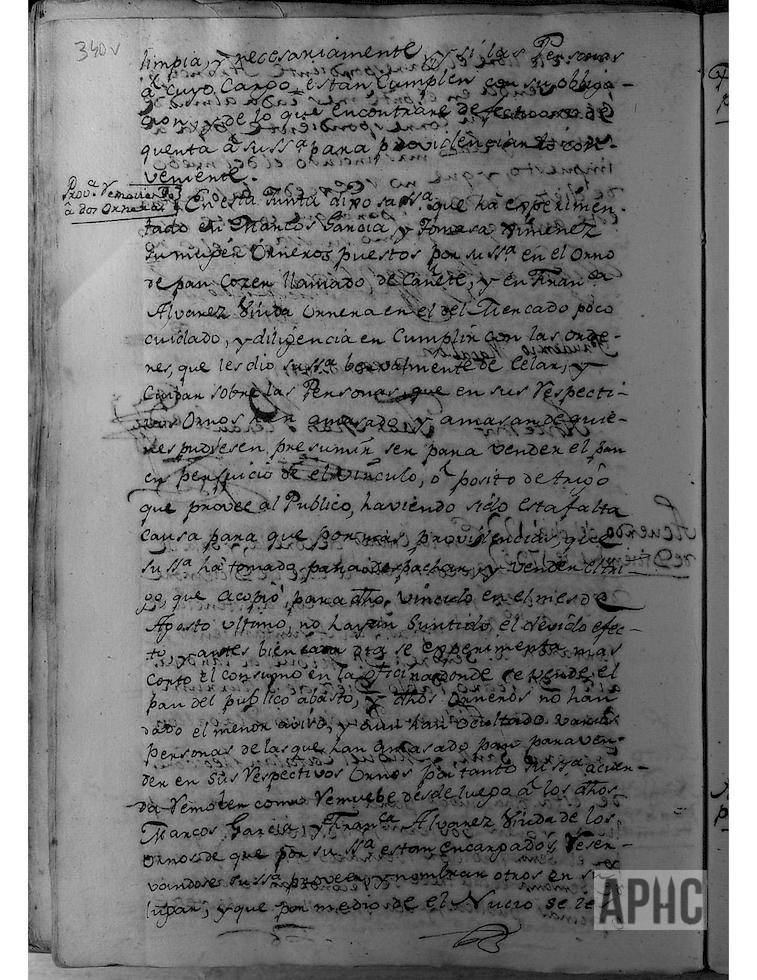 340v
limpia, y necesariamente y si las Personas
á cuyo Cargo estan, Cumplen con su obliga-
zion, y de lo que Encontrare de fectuoso dé
quenta á su ssª para providenciar lo con-
veniente.
Provª Remocion de
á dos Orneros
En esta Junta dixo sa ssª que ha experimen-
tado en Marcos Garcia y Tomasa Ximenez
su muger Orneros puestos por su ssª en el Orno
de pan Cozer llamado de Cañete, y en Franca
Alvarez Viuda Ornera en el del Mercado poco
cuidado, y diligencia en Cumplir con las orde-
nes, que les dio su ssª bervalmente de Celar, y
Cuidar sobre las Personas, que en sus Respecti-
vos Ornos han amasado, y amasan de quie-
nes pudiesen presumir ser para vender el pan
en perjuicio de el vinculo, o posito de trigo
que provee al Publico, haviendo sido esta falta
causa para que por mas providencias que
su ssª ha tomado para despachar, y vender el tri-
go, que acopió para dho vinculo en el mes de
Agosto ultimo, no hayan surtido el devido efec-
to, y antes bien cada dia se experimenta mas
Corto el consumo en la oficina donde se vende el
pan del publico abasto, y dhos Orneros no han
dado el menor aviso, y aun han ocultado varias
Personas de las que han amasado pan para ven-
der en sus Respectivos Ornos por tanto su ssª acuer-
da Remober como Remuebe desde luego á los dhos
Marcos Garcia, y Franca Alvarez Viuda de los
Ornos de que por su ssª estan encargados, Reser-
vandose su ssª proveer, y nombrar otros en su
lugar; y que por medio de el Nucio se le
Acuerdo
APHC